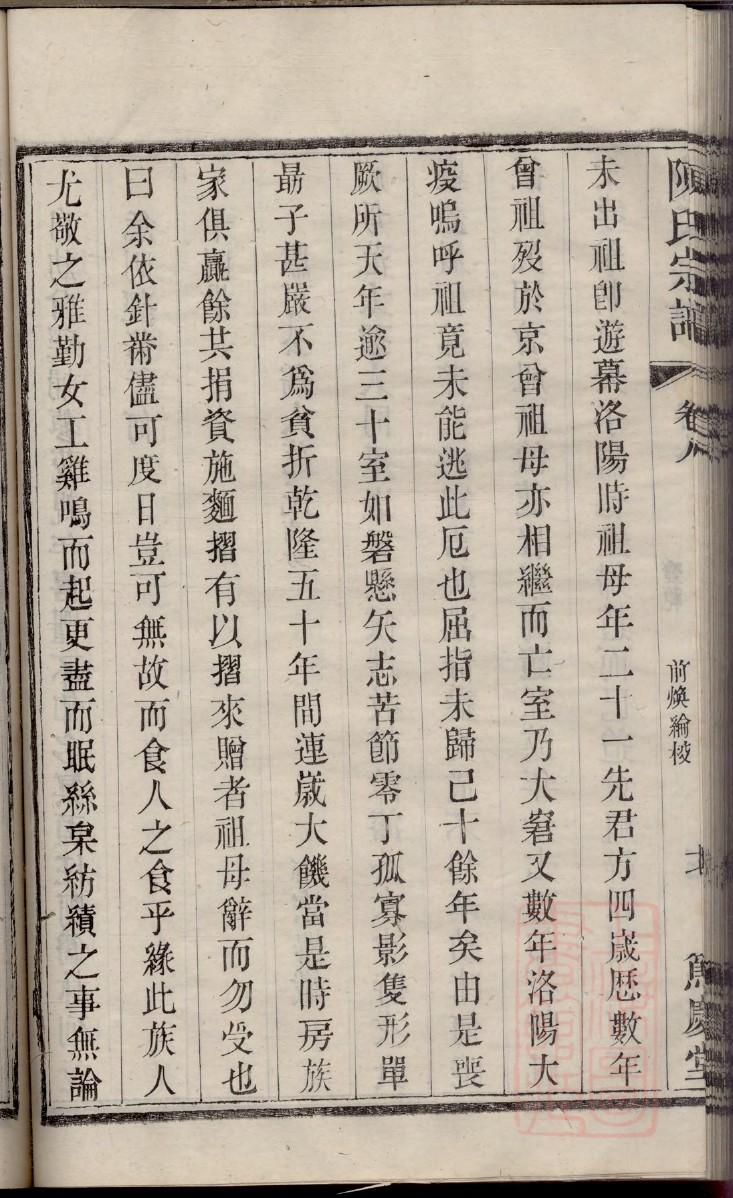 陳氏宗譜 卷八 前煥綸校 篤慶堂
未出祖卽遊幕洛陽時祖母年二十一先君方四歲歷數年
曾祖歿於京曾祖母亦相繼而亡室乃大窘又數年洛陽大
疫嗚呼祖竟未能逃此厄也屈指未歸己十餘年矣由是喪
厥所天年逾三十室如磐懸矢志苦節零丁孤寡影隻形單
勗子甚嚴不爲貧折乾隆五十年間連歲大饑當是時房族
家俱贏餘共捐資施麵摺有以摺來贈者祖母辭而勿受也
曰余依針黹儘可度日豈可無故而食人之食乎緣此族人
尤敬之雅勤女工雞鳴而起更盡而眠絲枲紡績之事無論